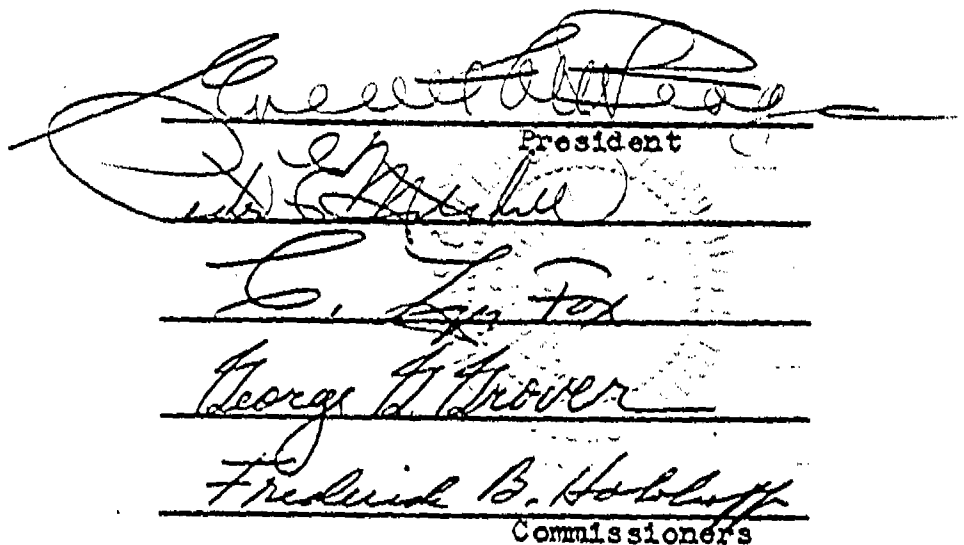 President
Mitchell
C. Lyn Fox
George G. Grover
Frederick B. Holoboff
Commissioners